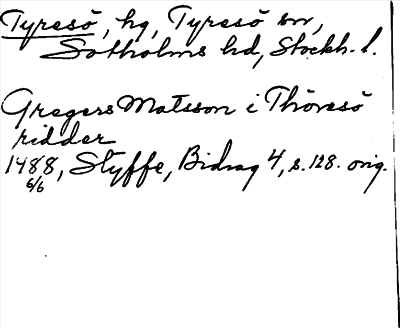 Tyresö, hg, Tyresö sn,
Sotholms hd, Stockh. l.
Gregers Matsson i Thöresö
ridder
1488, Styffe, Bidrag 4, s. 128. orig.
6/6